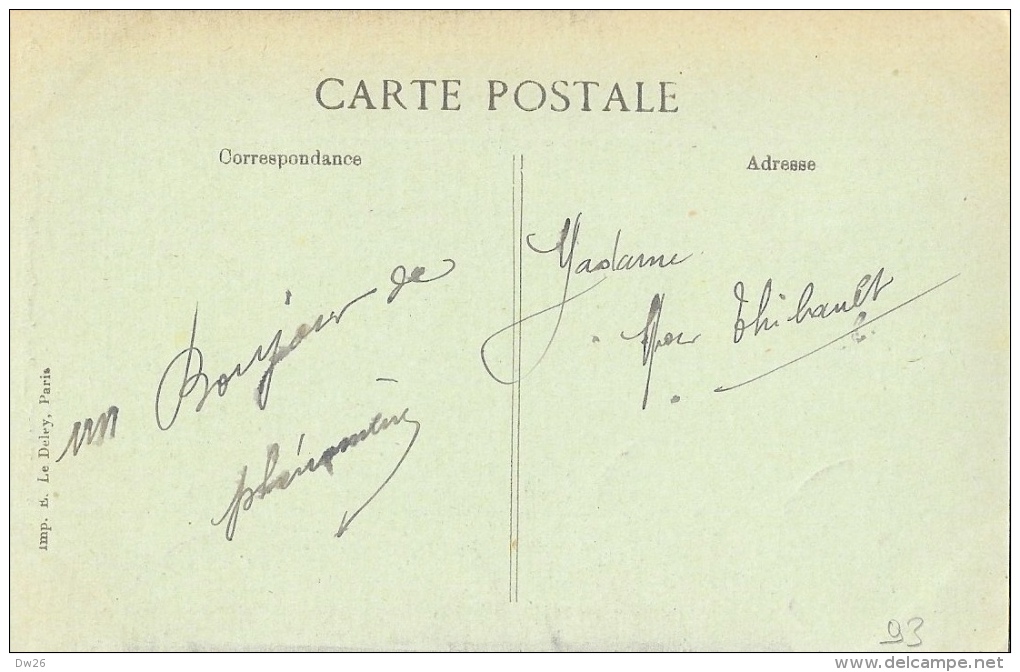 CARTE POSTALE
Correspondance
Adresse
un Bonjour de
Madame
Thibault
Imp. E. Le Deley, Paris
93
Dw26
www.delcampe.net